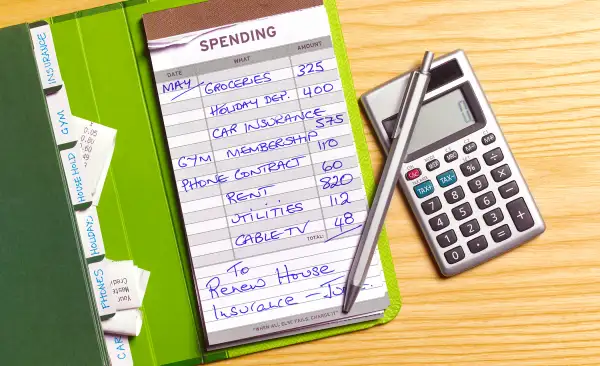 INSURANCE
GYM
HOUSE HOLD
HOLIDAYS
PHONES
CAR
Your
Credit
SPENDING
DATE WHAT AMOUNT
MAY GROCERIES 325
HOLIDAY DEP. 400
CAR INSURANCE 575
GYM MEMBERSHIP 110
PHONE CONTRACT 60
RENT 820
UTILITIES 112
CABLE TV 48
TOTAL
To
Renew House
Insurance –
"WHEN ALL ELSE FAILS, CHARGE IT"
MRC M- M+
TAX+ TAX- % ÷
7 8 9 ×
4 5 6 -
1 2 3 +
0 . =